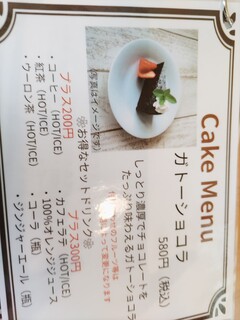 Cake Menu
ガトーショコラ
580円（税込）
しっとり濃厚でチョコレートを
たっぷり味わえるガトーショコラ
(写真はイメージです)
せのフルーツ等は
よって変更になります
※お得なセットドリンク※
プラス200円
・コーヒー (HOT/ICE)
・紅茶 (HOT/ICE)
・ウーロン茶 (HOT/ICE)
プラス300円
・カフェラテ (HOT/ICE)
・100%オレンジジュース
・コーラ（瓶）
・ジンジャーエール（瓶）